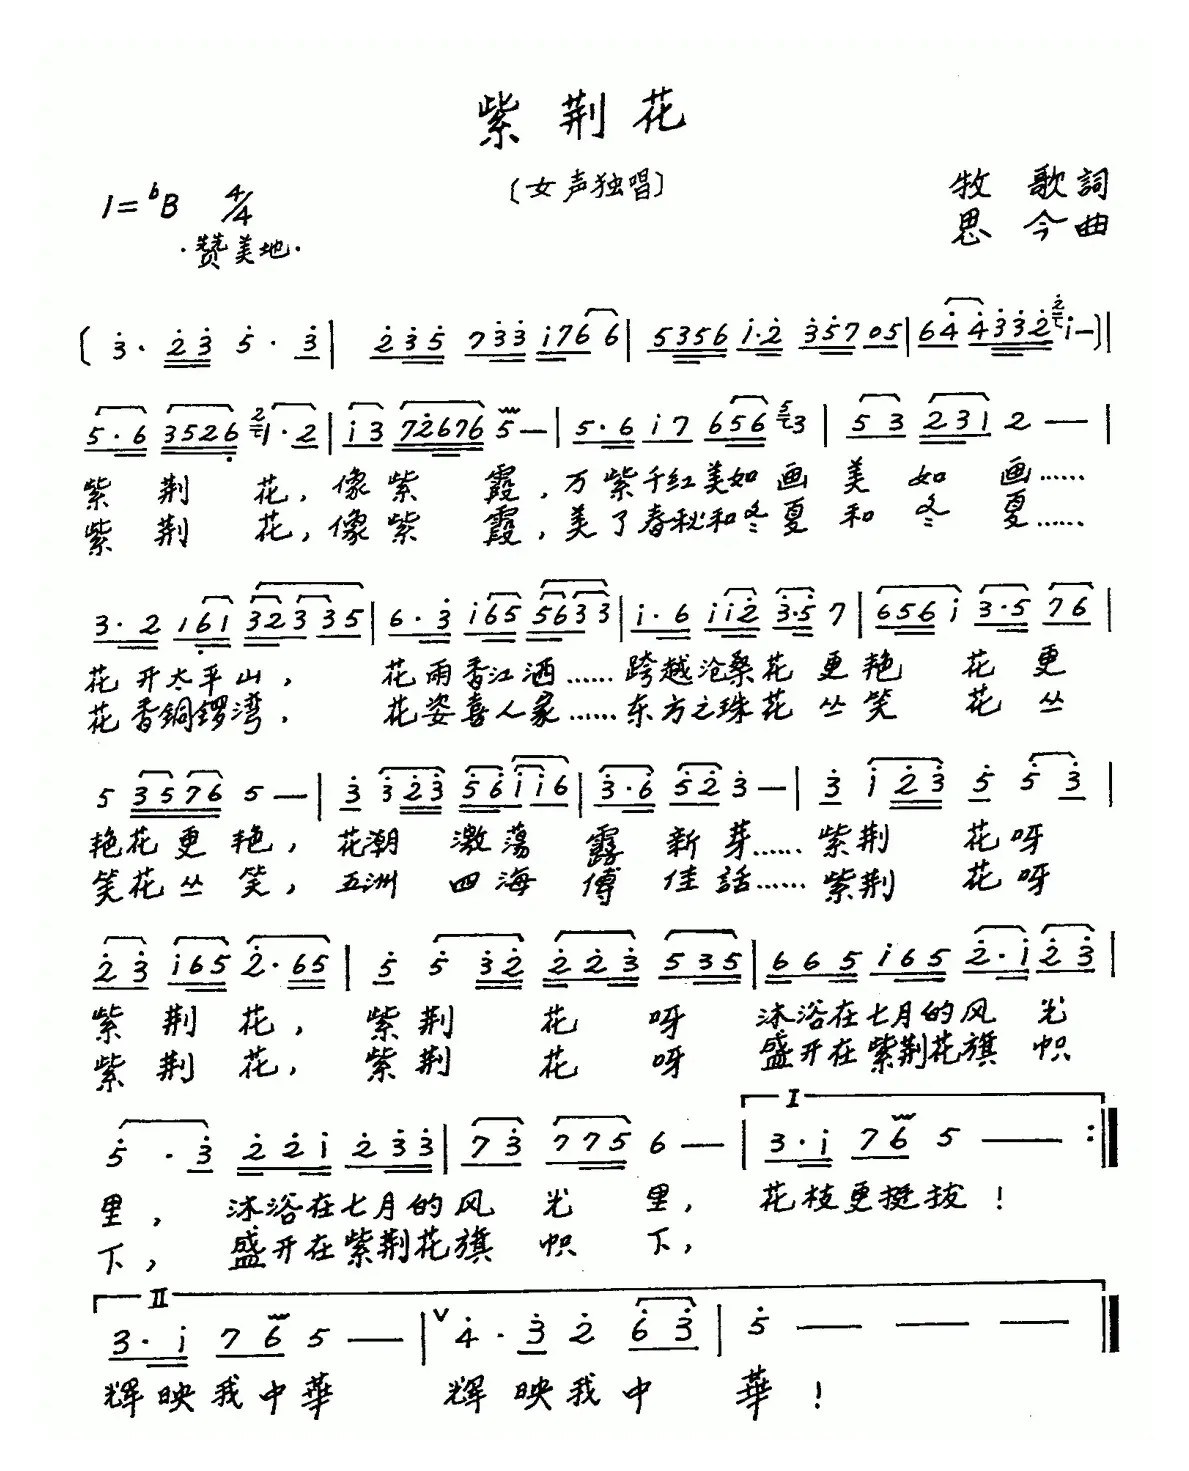 紫荆花
(女声独唱)
1=ᵇB 4/4
·赞美地·
牧 歌詞
思 今曲
( 3̇· 2̇3̇ 5̇· 3̇ | 2̇3̇5̇ 73̇3̇ i766 | 5356 i·2̇ 3̇57 05 | 64̇ 4̇3̇3̇2̇ i— ) |
5·6 3526 1·2 | i3 72676 5— | 5·6 i7 656 3 | 53 231 2— |
紫荆花，像紫霞，万紫千红美如画美如画……
紫荆花，像紫霞，美了春秋和冬夏和冬夏……
3·2 161 323335 | 6·3̇ i65 5633 | i·6 ii2̇ 3̇·5̇ 7 | 656i 3·5 76 |
花开太平山，花雨香江洒……跨越沧桑花更艳花更
花香铜锣湾，花姿喜人家……东方之珠花丛笑花丛
5 3576 5— | 3̇ 3̇2̇3̇ 5̇6ii6 | 3̇·6 5̇2̇ 3̇— | 3̇ i2̇3̇ 5̇ 5̇3̇ |
艳花更艳，花潮激荡露新芽……紫荆花呀
笑花丛笑，五洲四海傅佳話……紫荆花呀
2̇3̇ i65 2̇·65 | 5̇ 5̇ 3̇2̇ 2̇2̇3̇ 535 | 665 i65 2̇·i 2̇3̇ |
紫荆花，紫荆花呀沐浴在七月的风光
紫荆花，紫荆花呀盛开在紫荆花旗帜
5̇·3̇ 2̇2̇i 2̇3̇3̇ | 73̇ 775 6— | I 3·i 76 5— :‖
里，沐浴在七月的风光里，花枝更挺拔！
下，盛开在紫荆花旗帜下，
II
3·i 76 5— | ∨4̇·3̇ 2̇ 6̇3̇ | 5̇ — — — ‖
辉映我中華 辉映我中華！